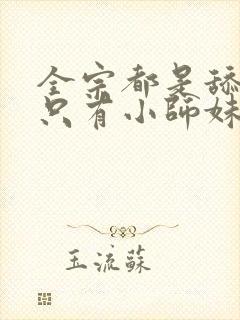 全宗都是舔
只有小師妹
玉流蘇